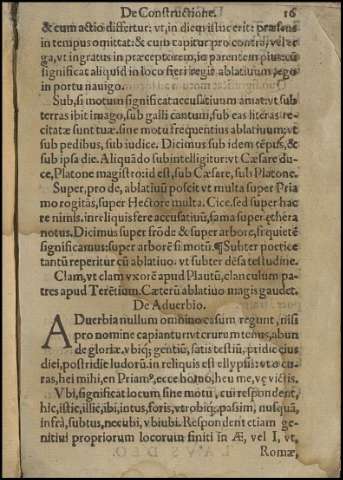 De Constructione. 16
& cum actio differtur: vt, in diē
in tempus omittat: & cum capitur pro contra, vel er-
ga, vt ingratus in præceptorem, in parentem pius: cū
significat aliquid in loco fieri regit ablatiuum: ego
in portu nauigo.
Sub, si motum significat accusatiuum amat: vt sub
terras ibit imago, sub galli cantum, sub eas literas re-
citatæ sunt tuæ. sine motu frequentius ablatiuum: vt
sub pedibus, sub iudice. Dicimus sub idem tēpus, &
sub ipsa die. Aliquādo subintelligitur: vt Cæsare du-
ce, Platone magistro: id est, sub Cæsare, sub Platone.
Super, pro de, ablatiuū poscit vt multa super Pria
mo rogitās, super Hectore multa. Cice. sed super hac
re nimis. in reliquis fere accusatiuū, fama super ęthera
notus. Dicimus super frōde & super arbore, si quietē
significamus: super arborē si motū. ¶ Subter poetice
tantū reperitur cū ablatiuo. vt subter dēsa testudine.
Clam, vt clam vxorē apud Plautū, clanculum pa-
tres apud Terētium. Cæterū ablatiuo magis gaudet.
De Aduerbio.
ADuerbia nullum omnino casum regunt, nisi
pro nomine capiantur: vt crurum tenus, abun
de gloriæ, vbiq; gentiū, satis testiū, pridie eius
diei, postridie ludorū. in reliquis est ellypsis: vt o cu-
ras, hei mihi, en Priamꝰ, ecce homo, heu me, vę victis.
Vbi, significat locum, sine motu, cui respondent,
hîc, istic, illic, ibi, intus, foris, vtrobiq; passim, nusquā,
infrà, subtus, necubi, vbiubi. Respondent etiam ge-
nitiui propriorum locorum finiti in Æ, vel I, vt,
Romæ,